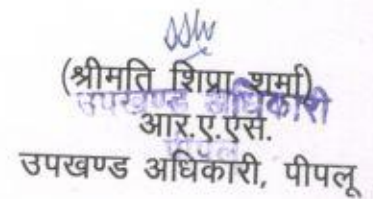 (श्रीमति शिप्रा शर्मा)
उपखण्ड अधिकारी
आर.ए.एस.
पीपलू
उपखण्ड अधिकारी, पीपलू